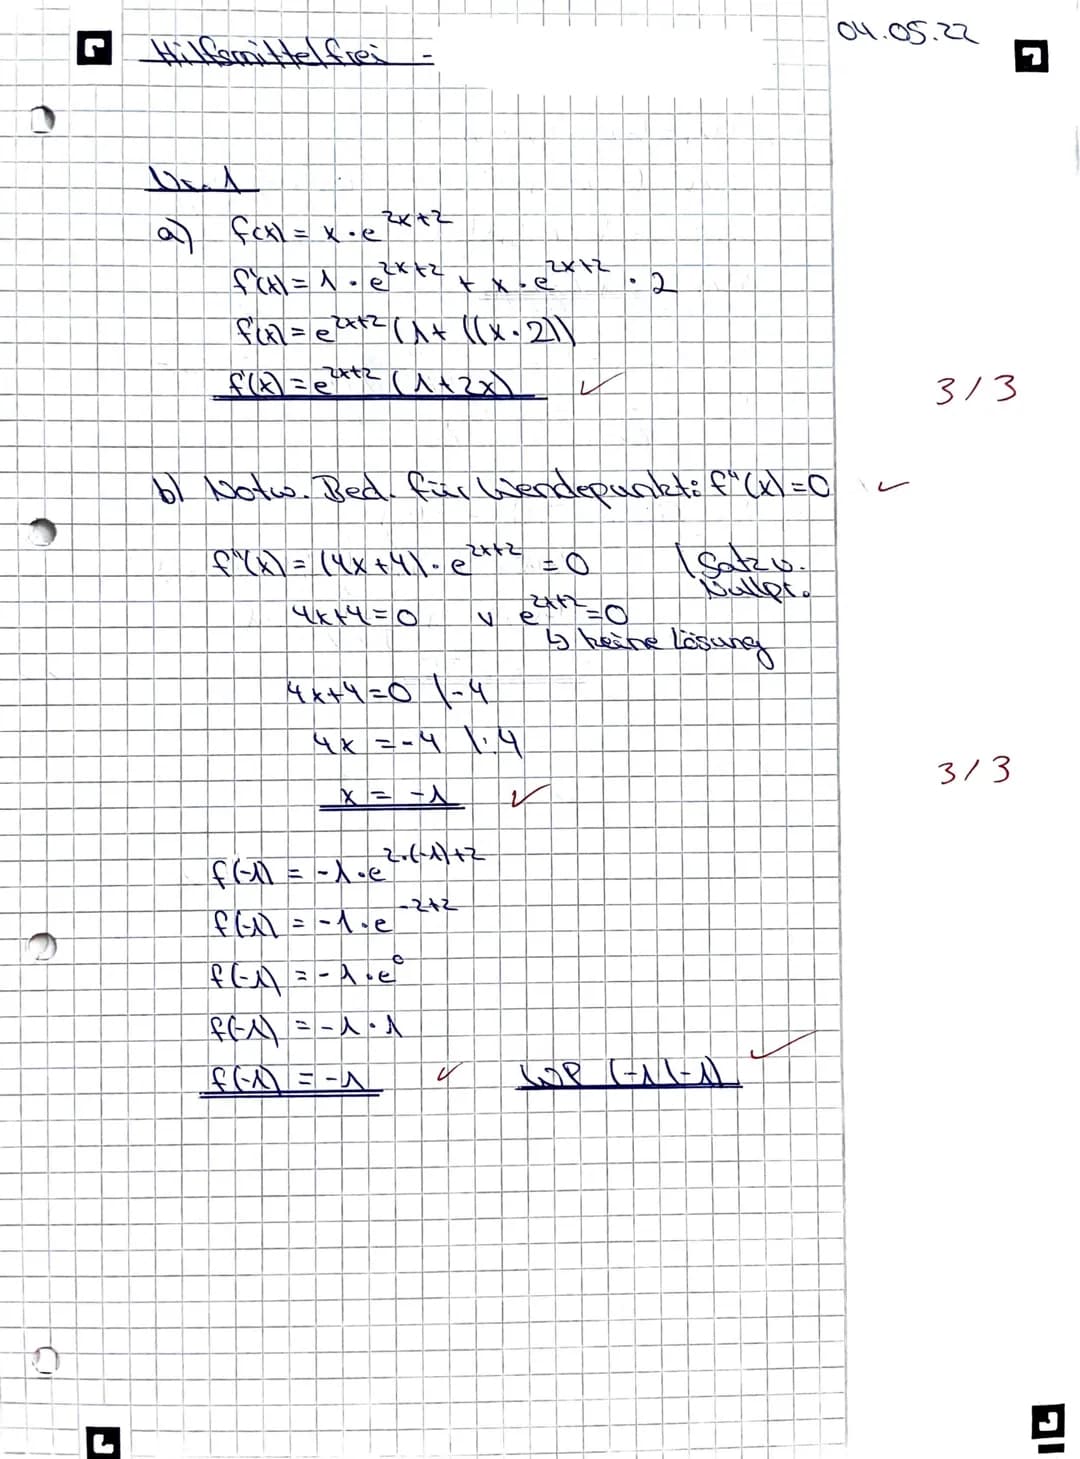 04.05.22
Hilfsmittelfrei -
Nr. 1
a) f(x) = x · e^2x+2
f'(x) = 1 · e^2x+2 + x · e^2x+2 · 2
f'(x) = e^2x+2 (1+ ((x · 2))
f'(x) = e^2x+2 (1+2x) ✓ 3/3
b) Notw. Bed. für Wendepunkt: f"(x) = 0 ✓
f"(x) = (4x+4) · e^2x+2 = 0 | Satz v. Nullpr.
4x+4=0 v e^2x+2=0
↳ keine Lösung
4x+4=0 |-4
4x = -4 |:4
x = -1 ✓ 3/3
f(-1) = -1 · e^2·(-1)+2
f(-1) = -1 · e^-2+2
f(-1) = -1 · e^0
f(-1) = -1 · 1
f(-1) = -1 ✓ WP (-1|-1) ✓